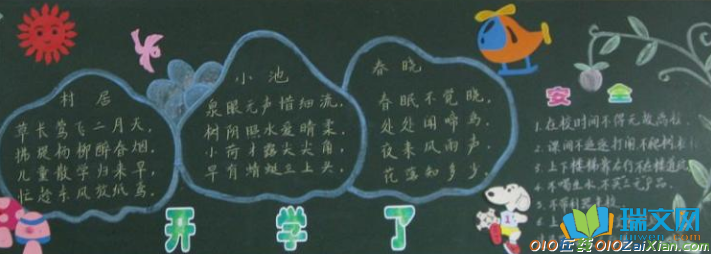 村居
草长莺飞二月天，
拂堤杨柳醉春烟。
儿童散学归来早，
忙趁东风放纸鸢。
小池
泉眼无声惜细流，
树阴照水爱晴柔。
小荷才露尖尖角，
早有蜻蜓立上头。
春晓
春眠不觉晓，
处处闻啼鸟。
夜来风雨声，
花落知多少。
安全
1.在校时间不得无故离校。
2.课间不追逐打闹，不爬树
3.上下楼梯靠右行，不在楼道
4.不喝生水，不买三无产品。
开学了
瑞文网
010在线 010ZaiXian.com